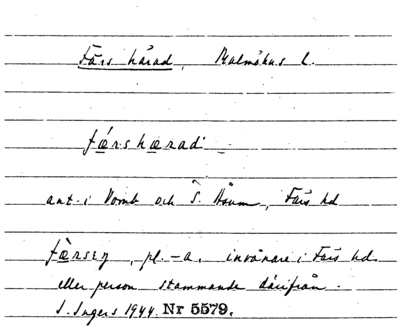 Färs härad, Malmöhus l.
fǽrshærad
ant. i Vomb och S. Åsum, Färs hd
fæ̀rsιŋ, pl. -a, invånare i Färs hd
eller person stammande därifrån.
I. Ingers 1944. Nr 5579.